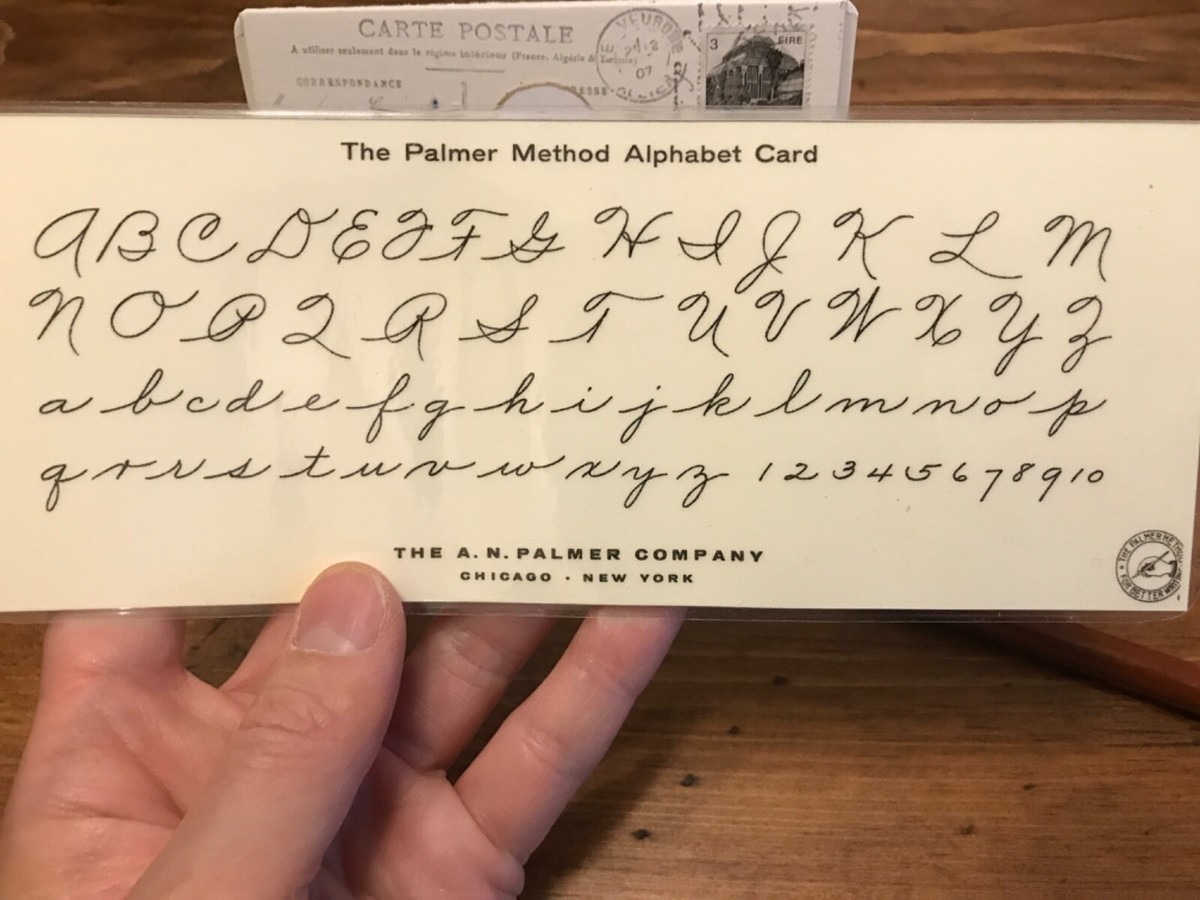 CARTE POSTALE
A utiliser seulement dans le régime intérieur (France, Algérie & Tunisie)
CORRESPONDANCE
3 EIRE
07
The Palmer Method Alphabet Card
A B C D E F F G H I J K L M
N O P Q R S T U V W X Y Z
a b c d e f g h i j k l m n o p
q r r s t u v w x y z 1 2 3 4 5 6 7 8 9 10
THE A. N. PALMER COMPANY
CHICAGO · NEW YORK
THE PALMER METHOD
FOR BETTER WRITING